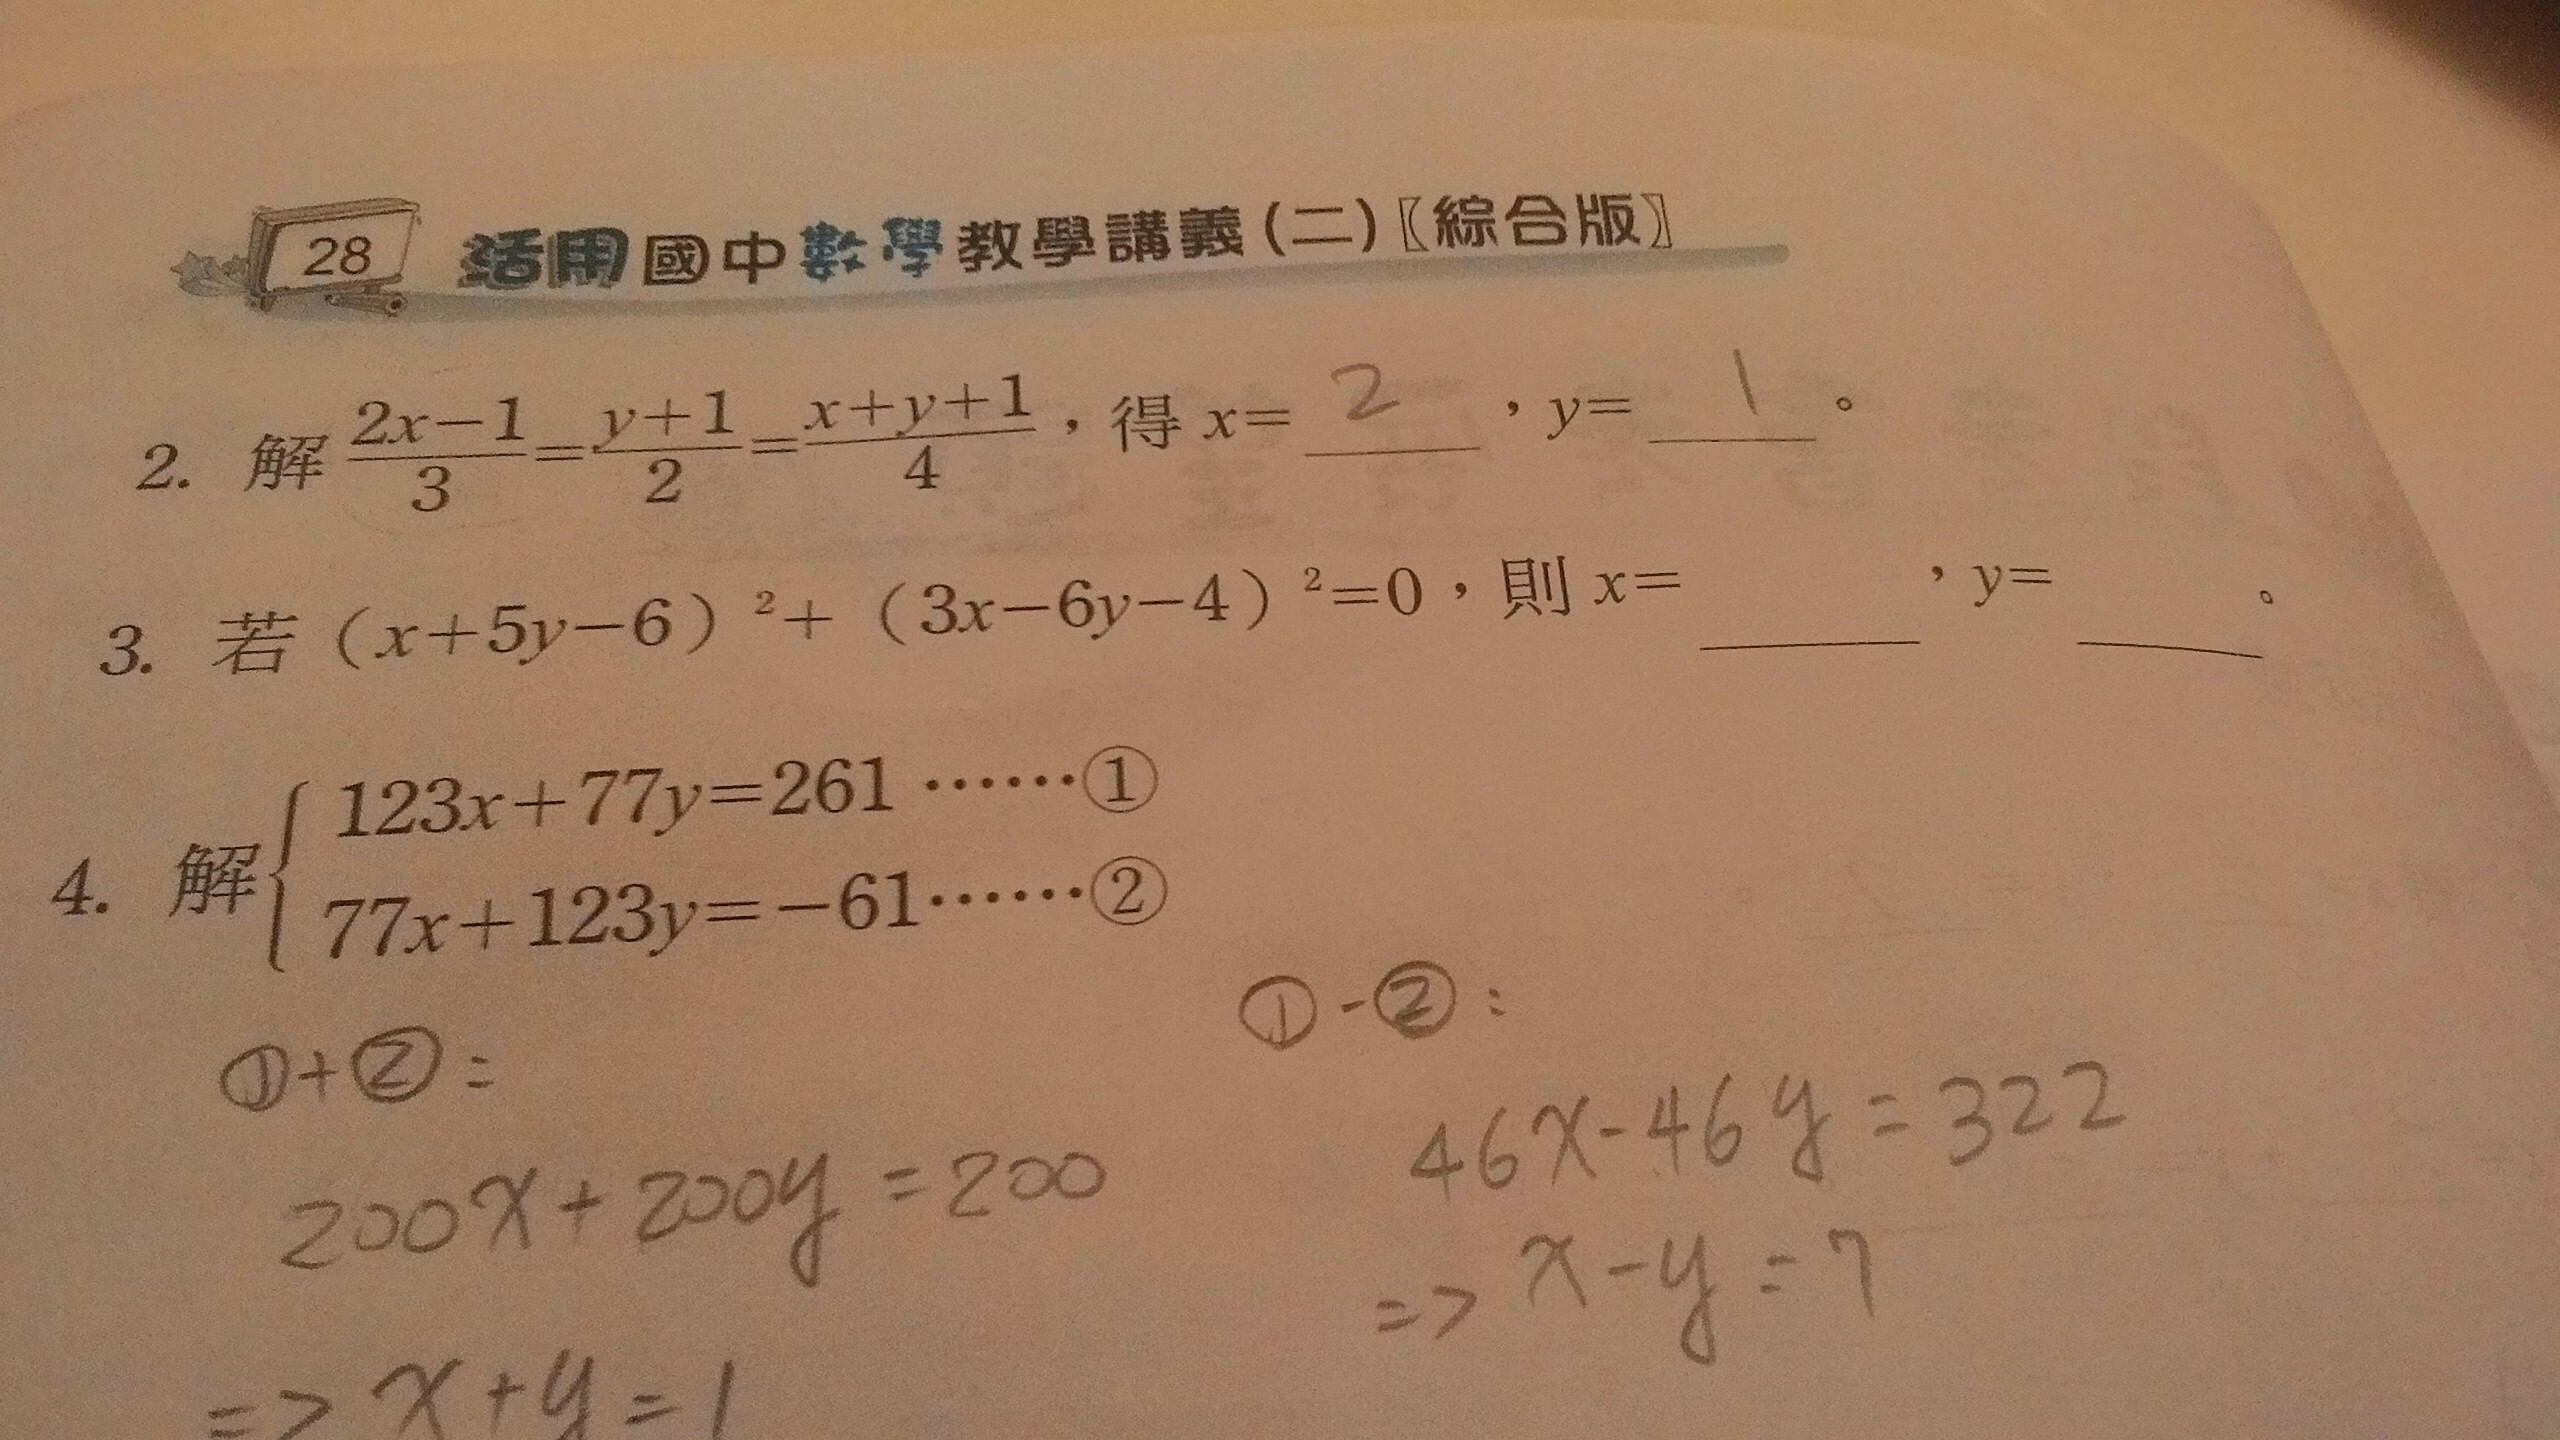 28 活用國中數學教學講義(二)〖綜合版〗
2. 解 (2x−1)/3=(y+1)/2=(x+y+1)/4，得 x= 2 ，y= 1 。
3. 若（x+5y−6）²+（3x−6y−4）²=0，則 x=______，y=______。
4. 解{ 123x+77y=261 ……①
77x+123y=−61……②
①+②:
200x+200y=200
=> x+y=1
①-②:
46x-46y=322
=> x-y=7